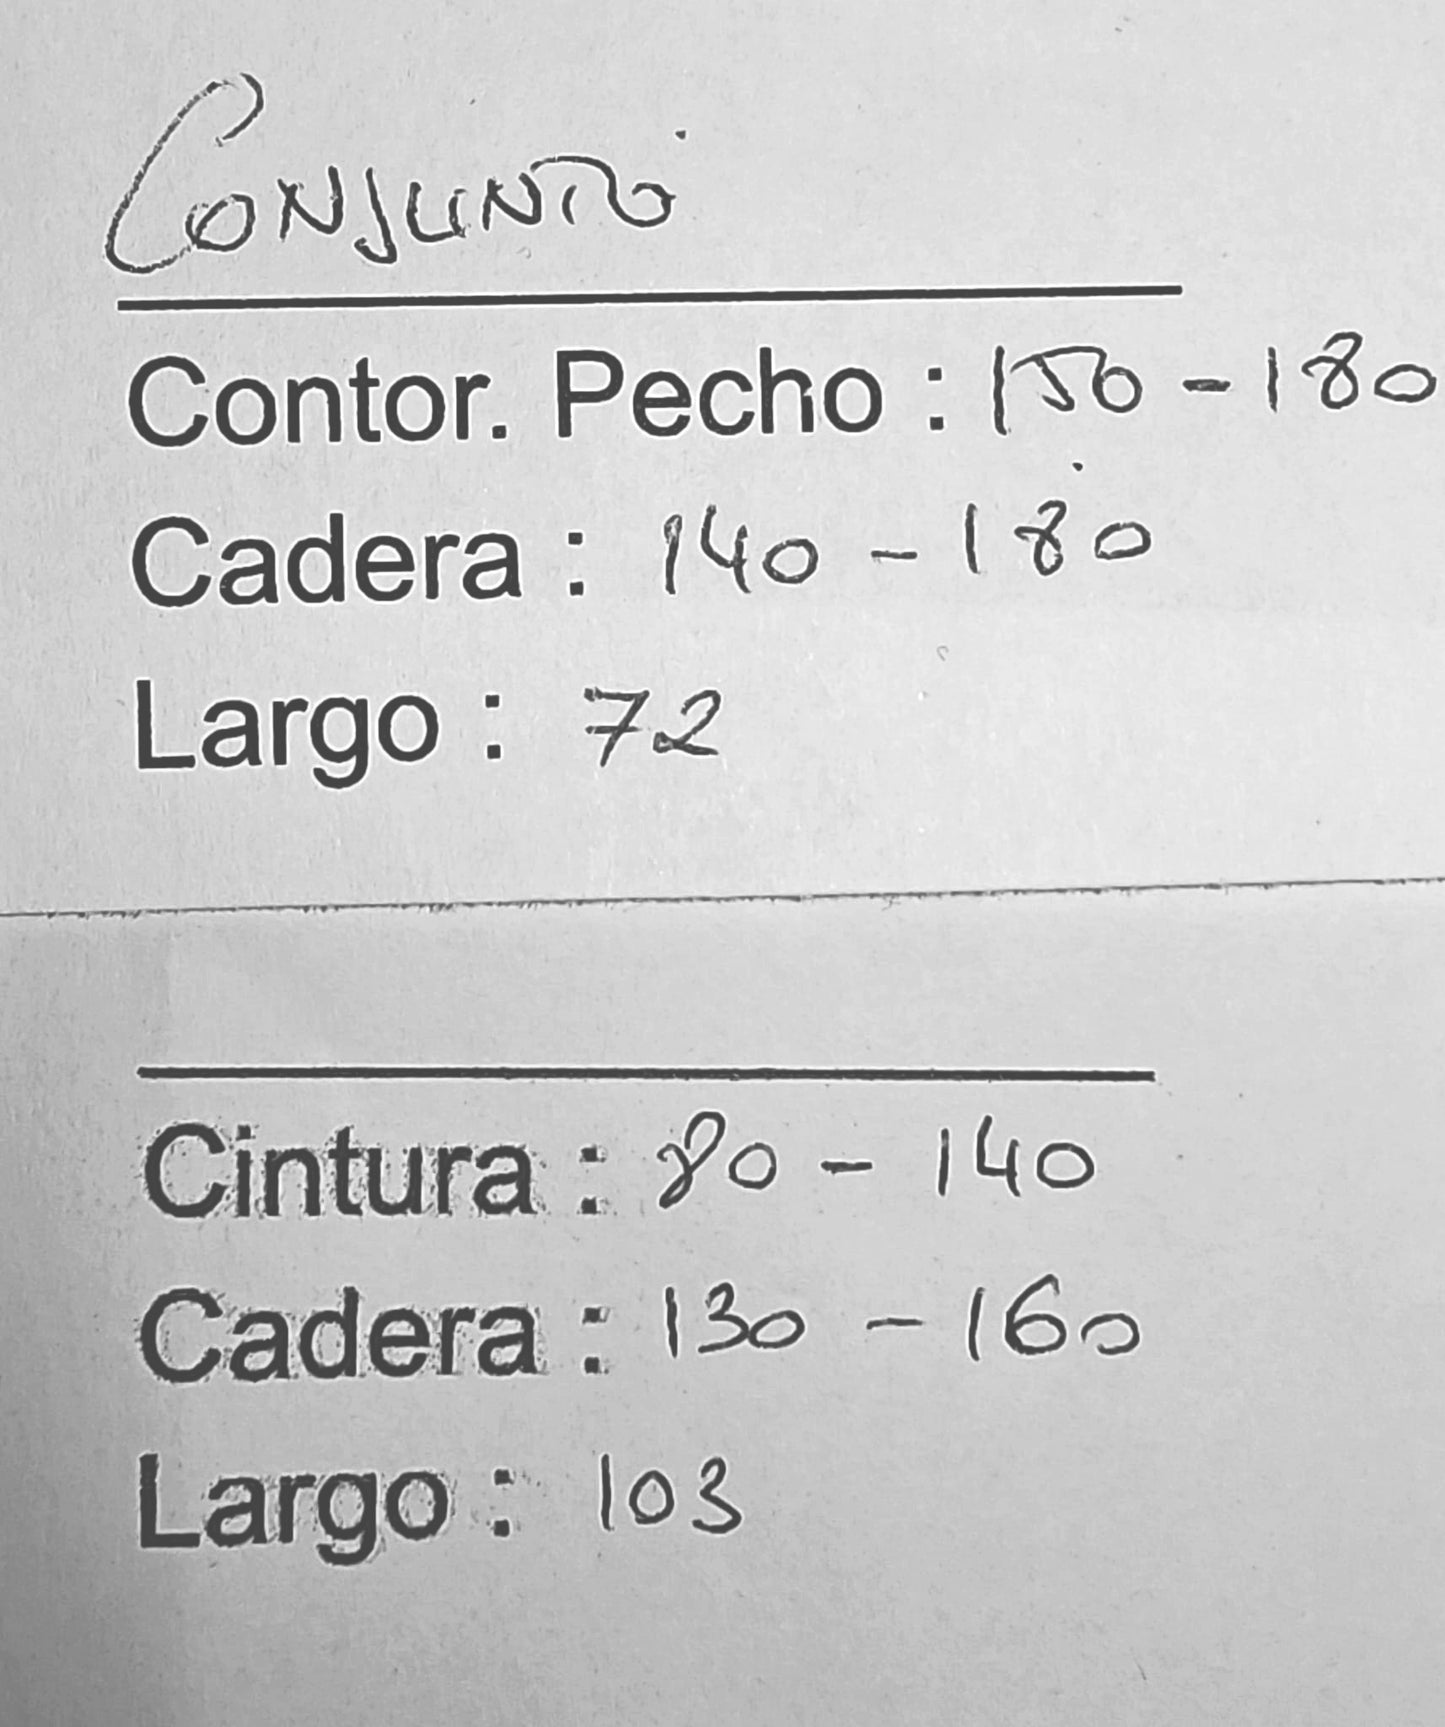 Conjunto
Contor. Pecho : 150 - 180
Cadera : 140 - 180
Largo : 72
Cintura : 80 - 140
Cadera : 130 - 160
Largo : 103